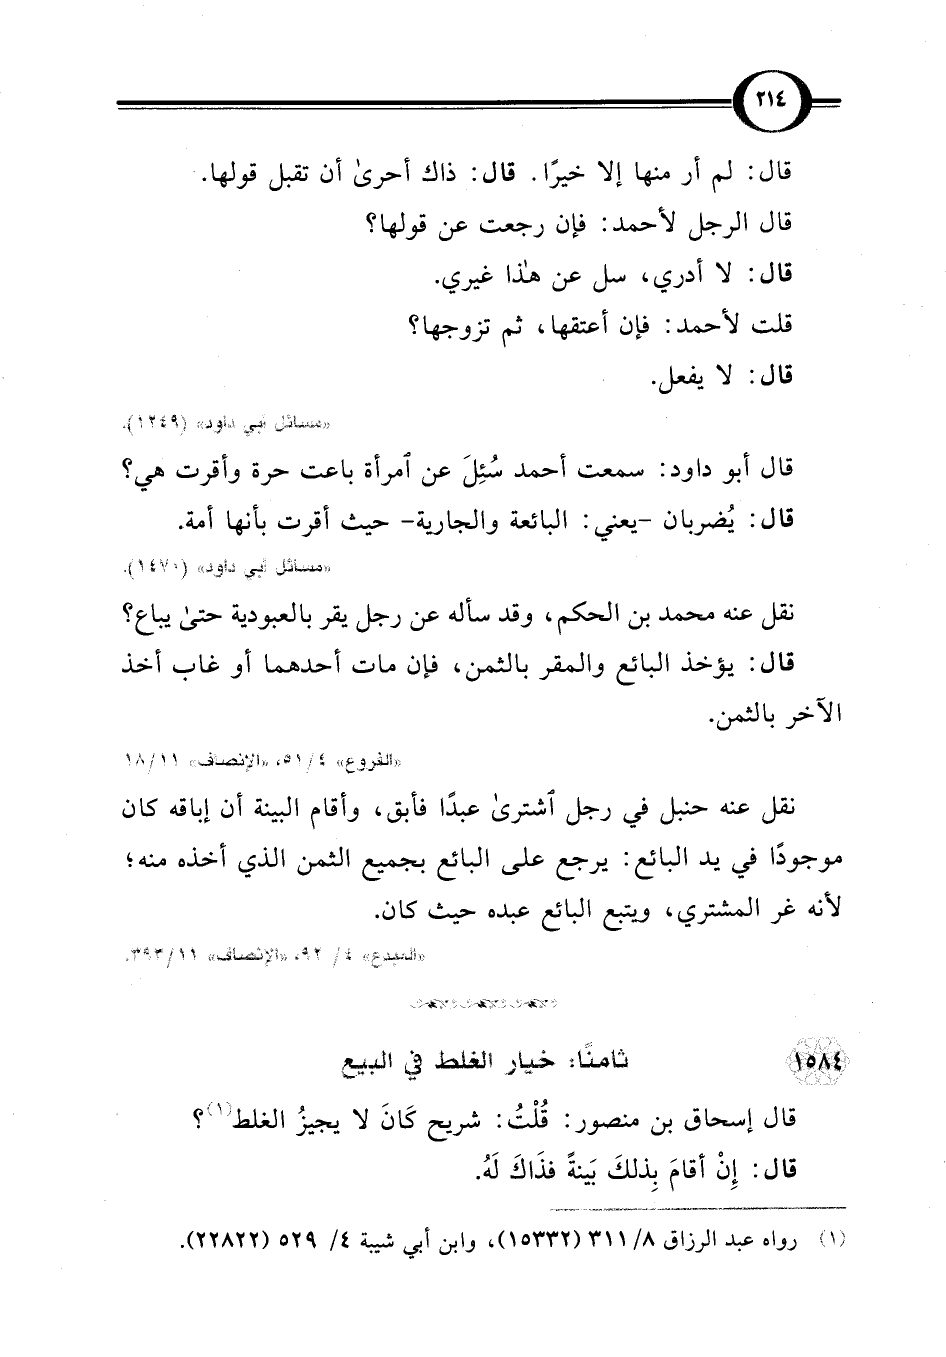 ٢١٤
قال: لم أر منها إلا خيرًا. قال: ذاك أحرىٰ أن تقبل قولها.
قال الرجل لأحمد: فإن رجعت عن قولها؟
قال: لا أدري، سل عن هٰذا غيري.
قلت لأحمد: فإن أعتقها، ثم تزوجها؟
قال: لا يفعل.
«مسائل أبي داود» (١٢٤٩).
قال أبو داود: سمعت أحمد سُئِلَ عن ٱمرأة باعت حرة وأقرت هي؟
قال: يُضربان -يعني: البائعة والجارية- حيث أقرت بأنها أمة.
«مسائل أبي داود» (١٤٧٠).
نقل عنه محمد بن الحكم، وقد سأله عن رجل يقر بالعبودية حتىٰ يباع؟
قال: يؤخذ البائع والمقر بالثمن، فإن مات أحدهما أو غاب أخذ
الآخر بالثمن.
«الفروع» ٤/ ٥١، «الإنصاف» ١١/ ١٨
نقل عنه حنبل في رجل ٱشترىٰ عبدًا فأبق، وأقام البينة أن إباقه كان
موجودًا في يد البائع: يرجع على البائع بجميع الثمن الذي أخذه منه؛
لأنه غر المشتري، ويتبع البائع عبده حيث كان.
«المبدع» ٤/ ٩٢، «الإنصاف» ١١/ ٣٩٣.
١٥٨٤ ثامنًا: خيار الغلط في البيع
قال إسحاق بن منصور: قُلْتُ: شريح كَانَ لا يجيزُ الغلط(١)؟
قال: إِنْ أقامَ بِذلكَ بَينةً فذَاكَ لَهُ.
(١) رواه عبد الرزاق ٨/ ٣١١ (١٥٣٣٢)، وابن أبي شيبة ٤/ ٥٢٩ (٢٢٨٢٢).